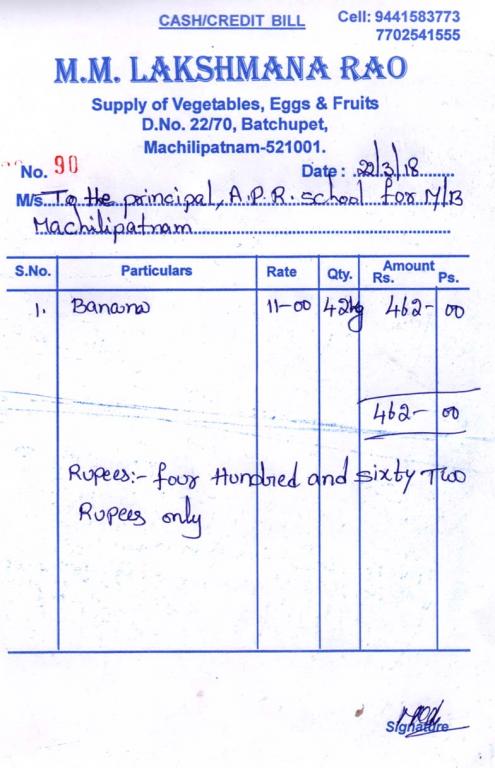 CASH/CREDIT BILL
Cell: 9441583773
7702541555
M.M. LAKSHMANA RAO
Supply of Vegetables, Eggs & Fruits
D.No. 22/70, Batchupet,
Machilipatnam-521001.
No. 90 Date : 22/3/18
M/s. To the principal, A.P.R. school for M/B
Machilipatnam
S.No. Particulars Rate Qty. Amount Rs. Ps.
1. Banana 11-00 42kg 462- 00
462- 00
Rupees:- four Hundred and sixty Two
Rupees only
Signature